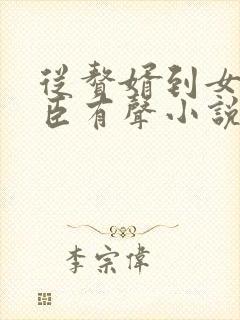 從贅婿到女
臣有聲小說
李宗偉